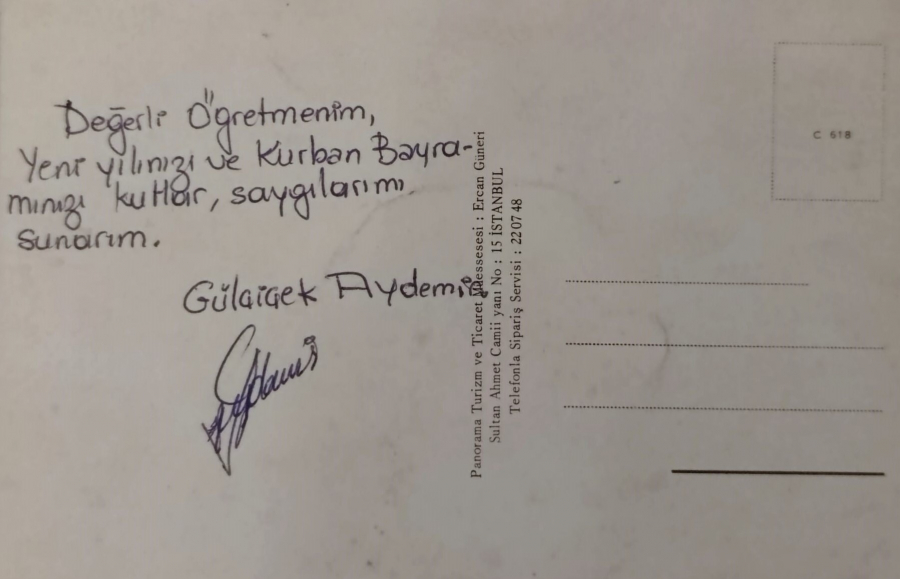 Değerli Öğretmenim,
Yeni yılınızı ve Kurban Bayra-
mınızı kutlar, saygılarımı
sunarım.
Gülçiçek Aydemir
Panorama Turizm ve Ticaret Müessesesi : Ercan Güneri
Sultan Ahmet Camii yanı No : 15 İSTANBUL
Telefonla Sipariş Servisi : 22 07 48
C 618